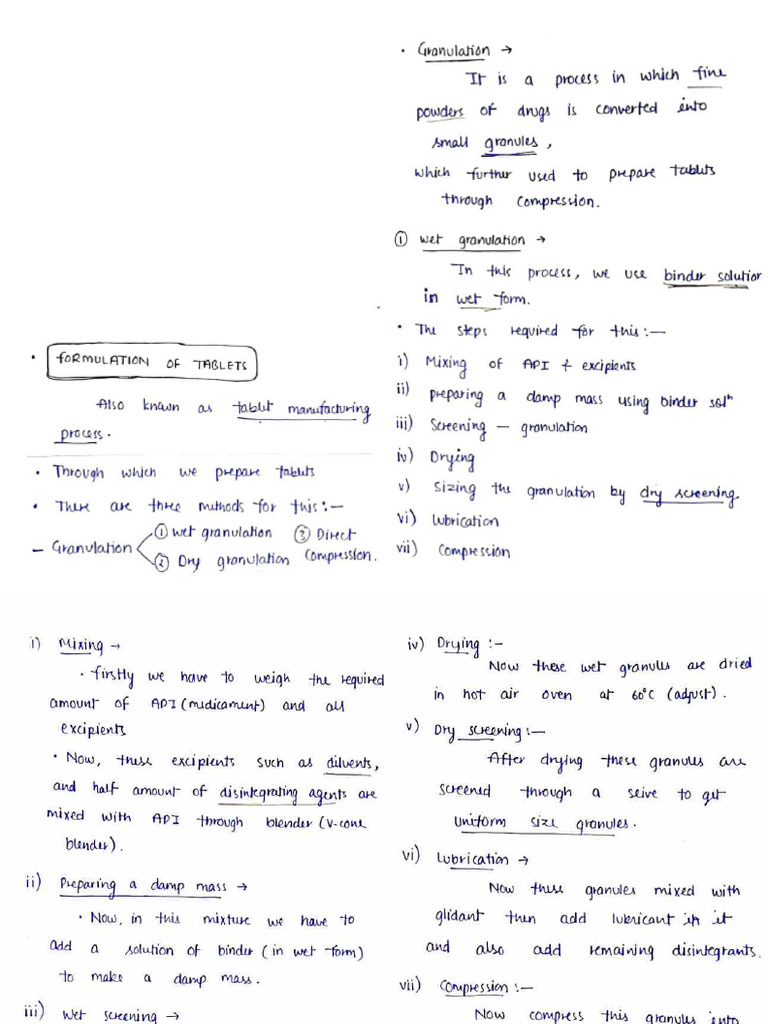 • FORMULATION OF TABLETS
Also known as tablet manufacturing
process.
• Through which we prepare tablets
• There are three methods for this:—
– Granulation ① wet granulation ③ Direct
② Dry granulation compression.
• Granulation →
It is a process in which fine
powders of drugs is converted into
small granules,
which further used to prepare tablets
through compression.
① wet granulation →
In this process, we use binder solution
in wet form.
• The steps required for this:—
i) Mixing of API & excipients
ii) preparing a damp mass using binder solⁿ
iii) Screening – granulation
iv) Drying
v) Sizing the granulation by dry screening.
vi) lubrication
vii) Compression
i) Mixing →
• firstly we have to weigh the required
amount of API (medicament) and all
excipients
• Now, these excipients such as diluents,
and half amount of disintegrating agents are
mixed with API through blender (v-cone
blender).
ii) Preparing a damp mass →
• Now, in this mixture we have to
add a solution of binder (in wet form)
to make a damp mass.
iii) Wet screening →
iv) Drying :–
Now these wet granules are dried
in hot air oven at 60°C (adjust).
v) Dry screening:—
After drying these granules are
screened through a seive to get
uniform size granules.
vi) lubrication →
Now these granules mixed with
glidant then add lubricant in it
and also add remaining disintegrants.
vii) Compression :–
Now compress this granules into